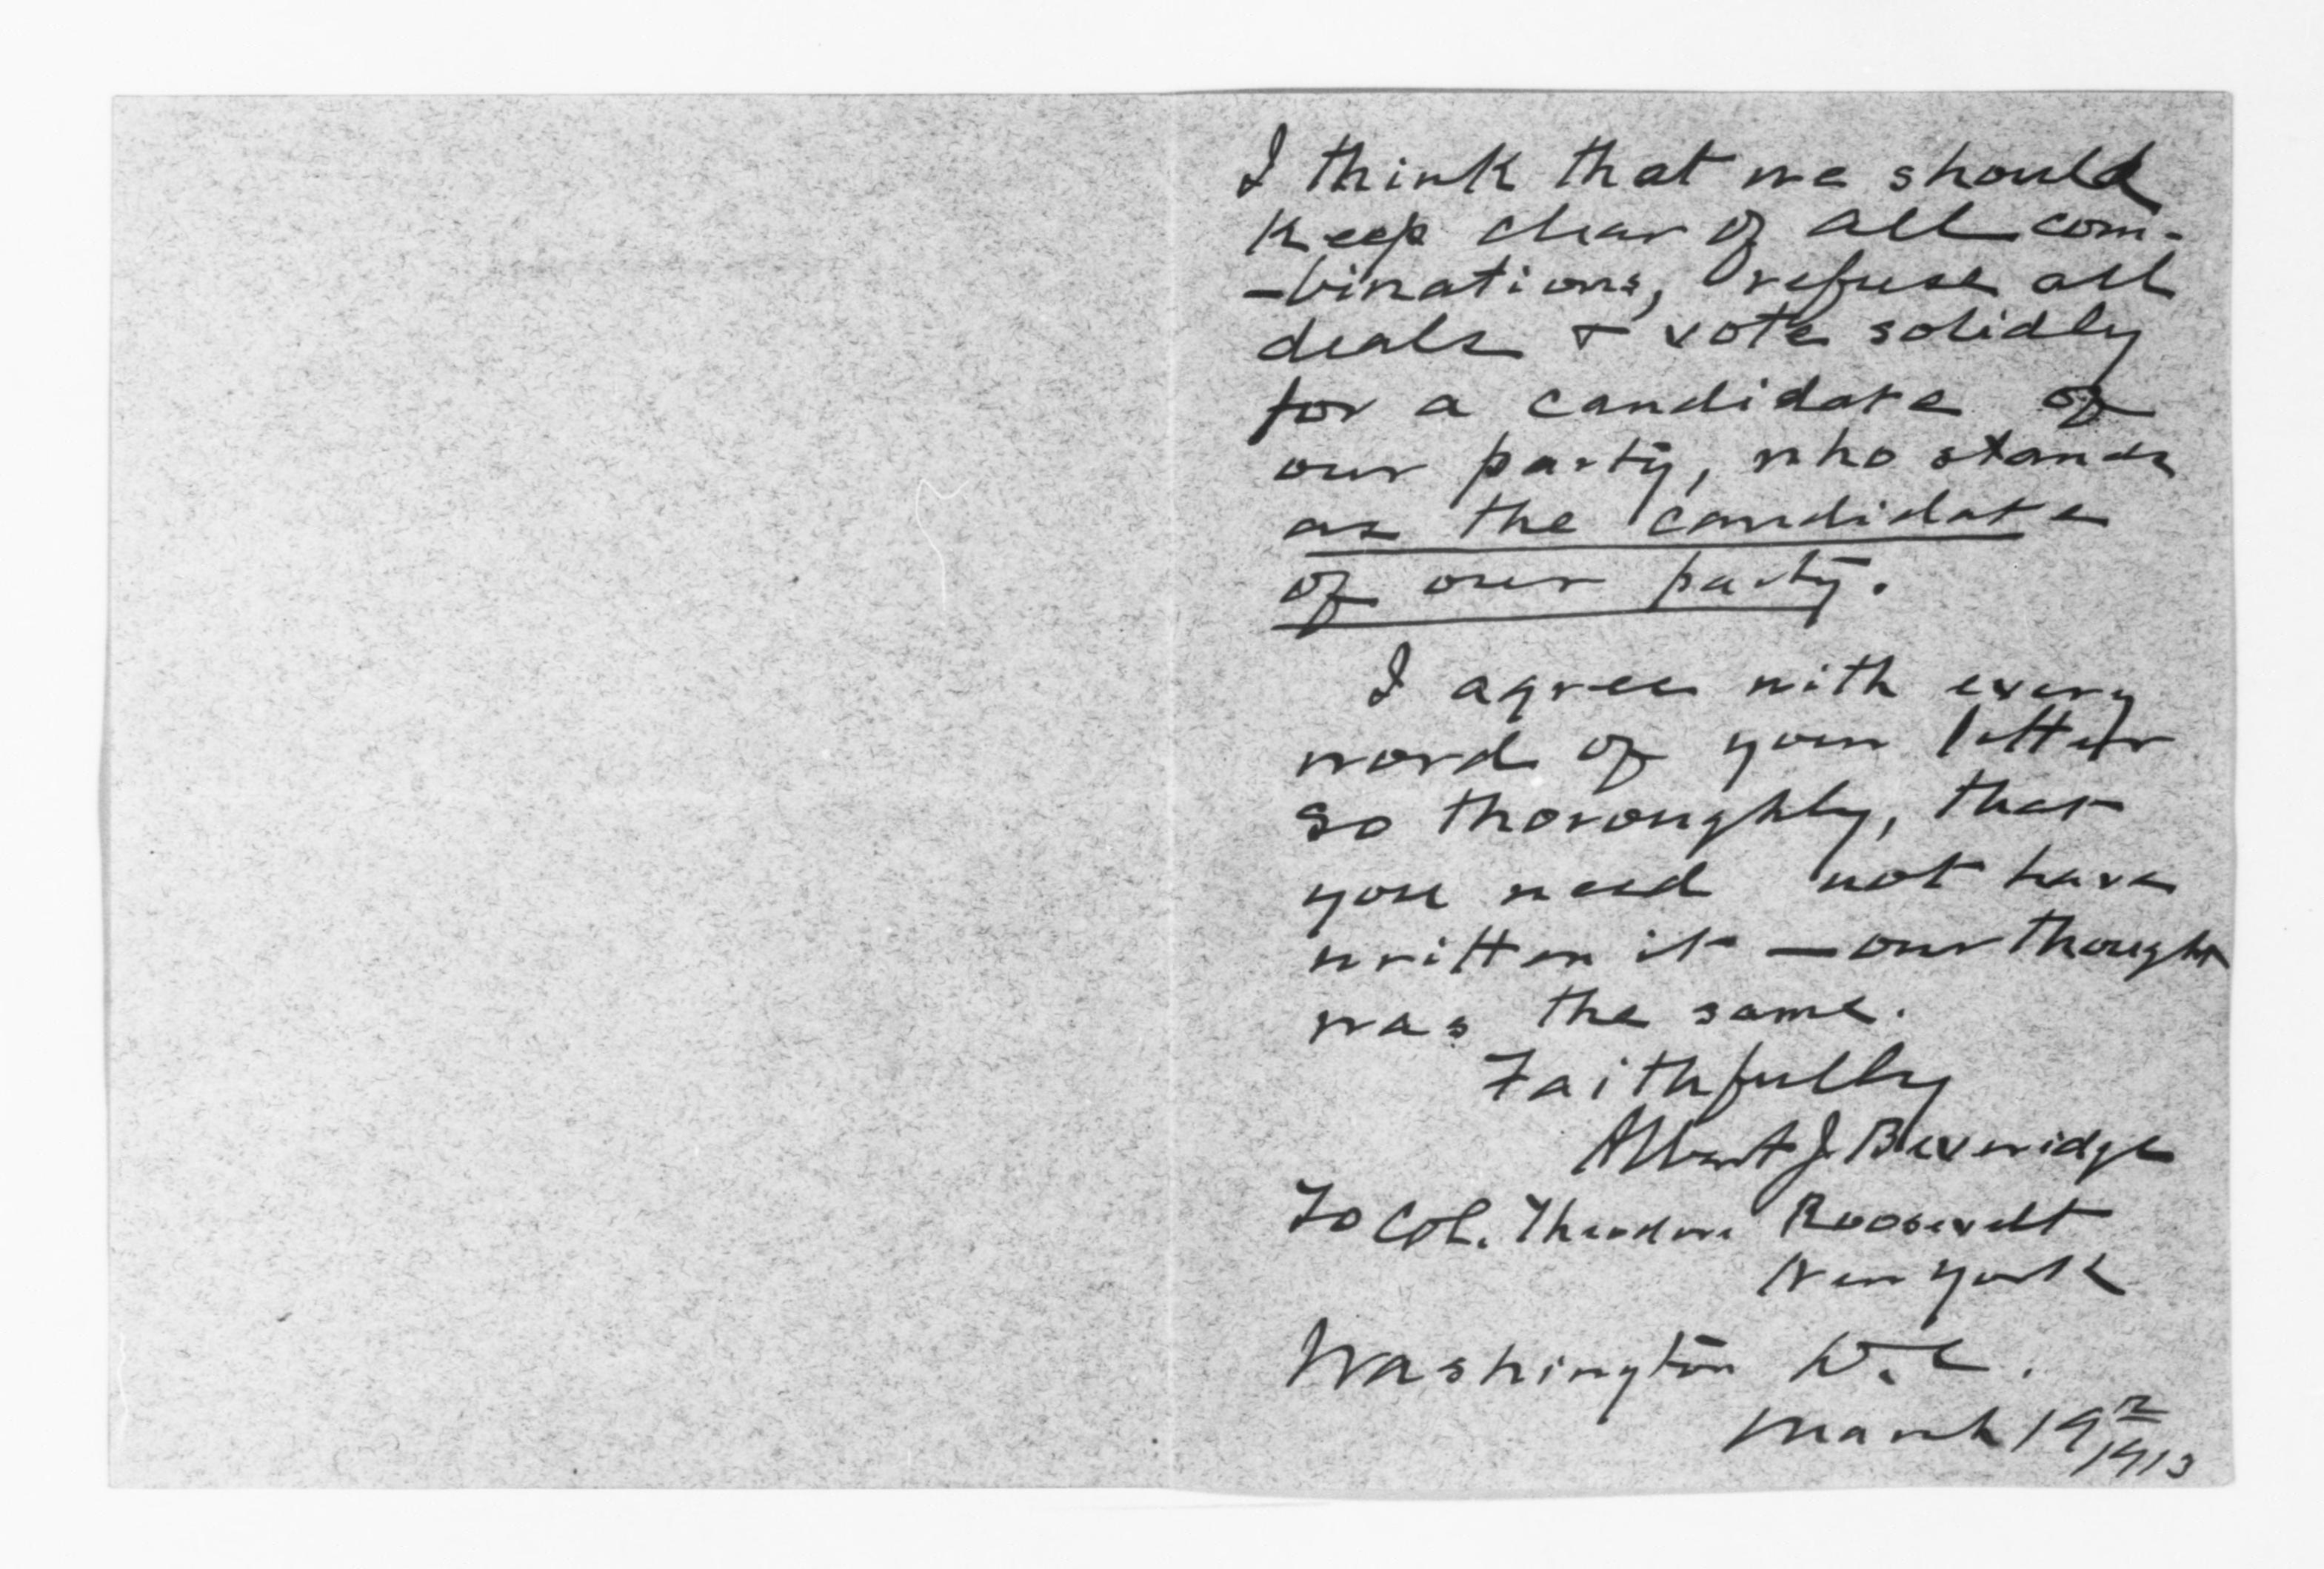 I think that we should
keep clear of all com-
-binations, refuse all
deals & vote solidly
for a candidate of
our party, who stands
as the candidate
of our party.
I agree with every
word of your letter
so thoroughly, that
you need not have
written it — our thought
was the same.
Faithfully
Albert J. Beveridge
To Col. Theodore Roosevelt
New York
Washington D.C.
March 19th
1913